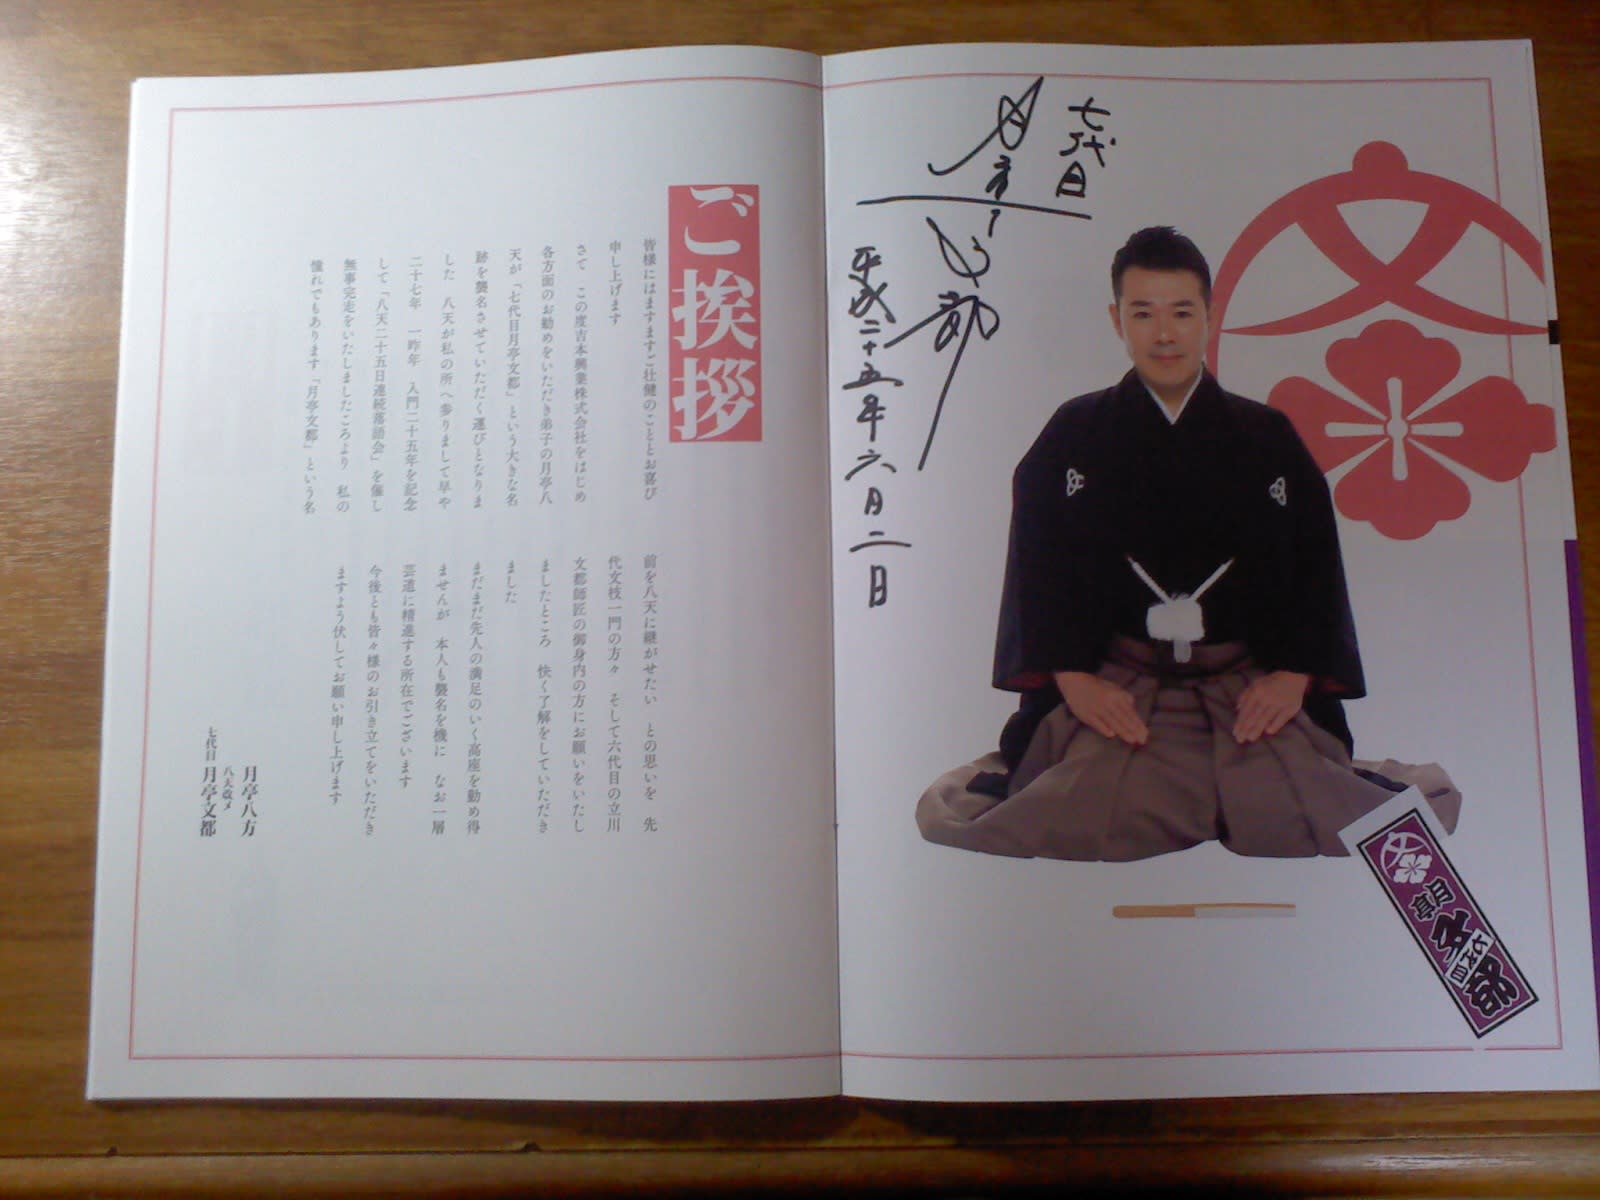 ご挨拶
皆様にはますますご壮健のこととお喜び
申し上げます
さて この度吉本興業株式会社をはじめ
各方面のお勧めをいただき弟子の月亭八
天が「七代目月亭文都」という大きな名
跡を襲名させていただく運びとなりま
した 八天が私の所へ参りまして早や
二十七年 一昨年 入門二十五年を記念
して「八天二十五日連続落語会」を催し
無事完走をいたしましたころより 私の
憧れでもあります「月亭文都」という名
前を八天に継がせたい との思いを 先
代文枝一門の方々 そして六代目の立川
文都師匠の御身内の方にお願いをいたし
ましたところ 快く了解をしていただき
ました
まだまだ先人の満足のいく高座を勤め得
ませんが 本人も襲名を機に なお一層
芸道に精進する所存でございます
今後とも皆々様のお引き立てをいただき
ますよう伏してお願い申し上げます
月亭八方
八天改メ
七代目 月亭文都
七代目
月亭文都
平成二十五年六月二日
文
月亭
七代目
文都